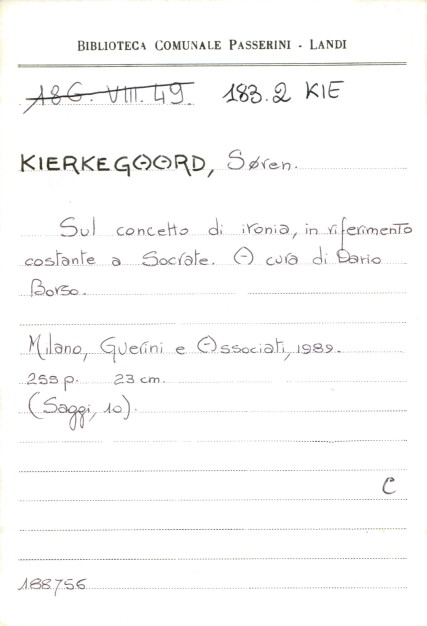 BIBLIOTECA COMUNALE PASSERINI - LANDI
18G. VIII. 49. 183.2 KIE
KIERKEGAARD, Søren.
Sul concetto di ironia, in riferimento
costante a Socrate. A cura di Dario
Borso.
Milano, Guerini e Associati, 1989.
259 p. 23 cm.
(Saggi, 10).
C
188756